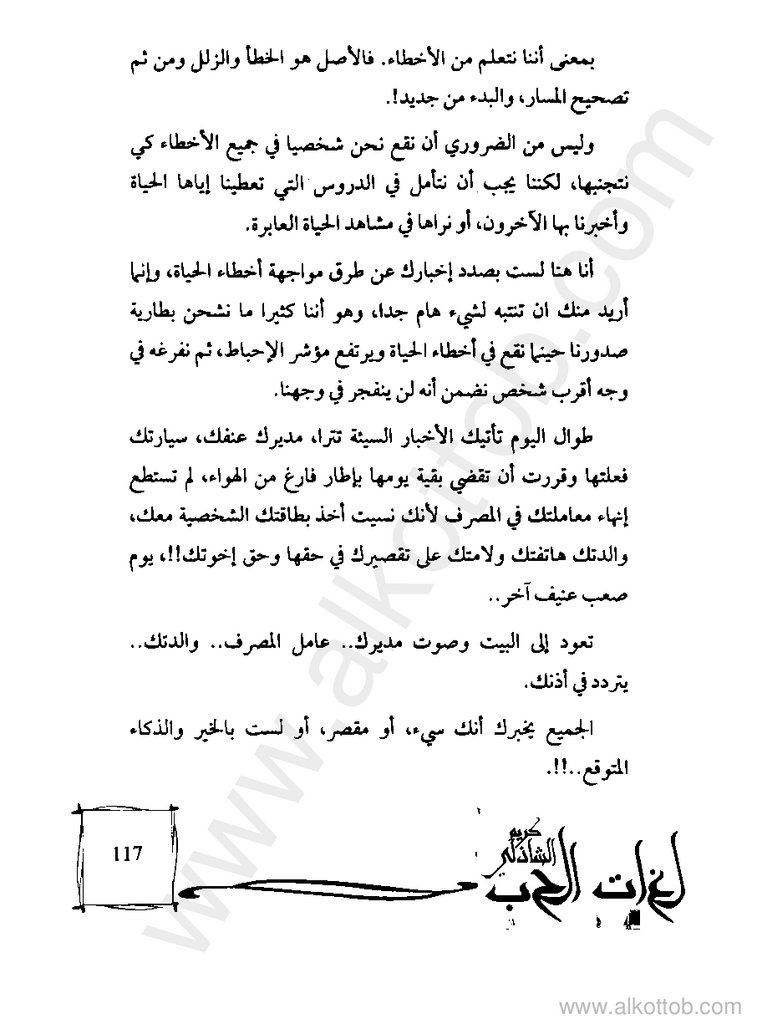 بمعنى أننا نتعلم من الأخطاء. فالأصل هو الخطأ والزلل ومن ثم
تصحيح المسار، والبدء من جديد!.
وليس من الضروري أن نقع نحن شخصيا في جميع الأخطاء كي
نتجنبها، لكننا يجب أن نتأمل في الدروس التي تعطينا إياها الحياة
وأخبرنا بها الآخرون، أو نراها في مشاهد الحياة العابرة.
أنا هنا لست بصدد إخبارك عن طرق مواجهة أخطاء الحياة، وإنما
أريد منك ان تنتبه لشيء هام جدا، وهو أننا كثيرا ما نشحن بطارية
صدورنا حينما نقع في أخطاء الحياة ويرتفع مؤشر الإحباط، ثم نفرغه في
وجه أقرب شخص نضمن أنه لن ينفجر في وجهنا.
طوال اليوم تأتيك الأخبار السيئة تترا، مديرك عنفك، سيارتك
فعلتها وقررت أن تقضي بقية يومها بإطار فارغ من الهواء، لم تستطع
إنهاء معاملتك في المصرف لأنك نسيت أخذ بطاقتك الشخصية معك،
والدتك هاتفتك ولامتك على تقصيرك في حقها وحق إخوتك!!، يوم
صعب عنيف آخر..
تعود إلى البيت وصوت مديرك.. عامل المصرف.. والدتك..
يتردد في أذنك.
الجميع يخبرك أنك سيء، أو مقصر، أو لست بالخير والذكاء
المتوقع..!!.
117
كريم
الشاذلي
لغات الحب
www.alkottob.com
www.alkottob.com